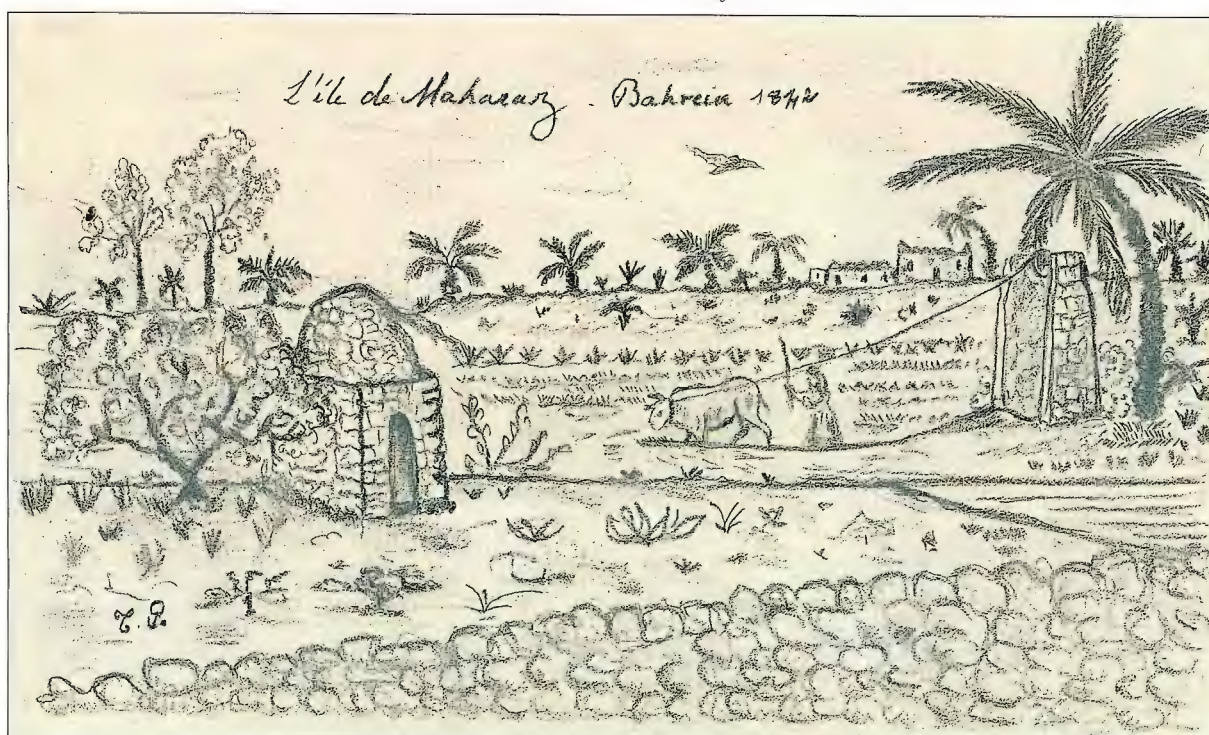 L'île de Maharaz - Bahrein 1842
T. P.